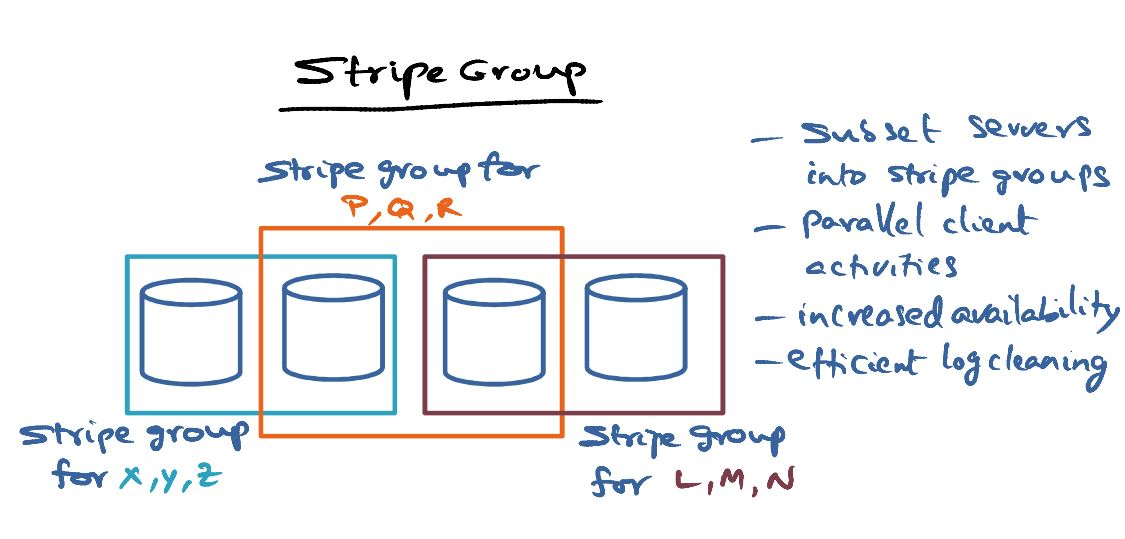 Stripe Group
Stripe group for
P, Q, R
Stripe group
for X, Y, Z
Stripe group
for L, M, N
- Subset servers
into stripe groups
- Parallel client
activities
- increased availability
- efficient log cleaning